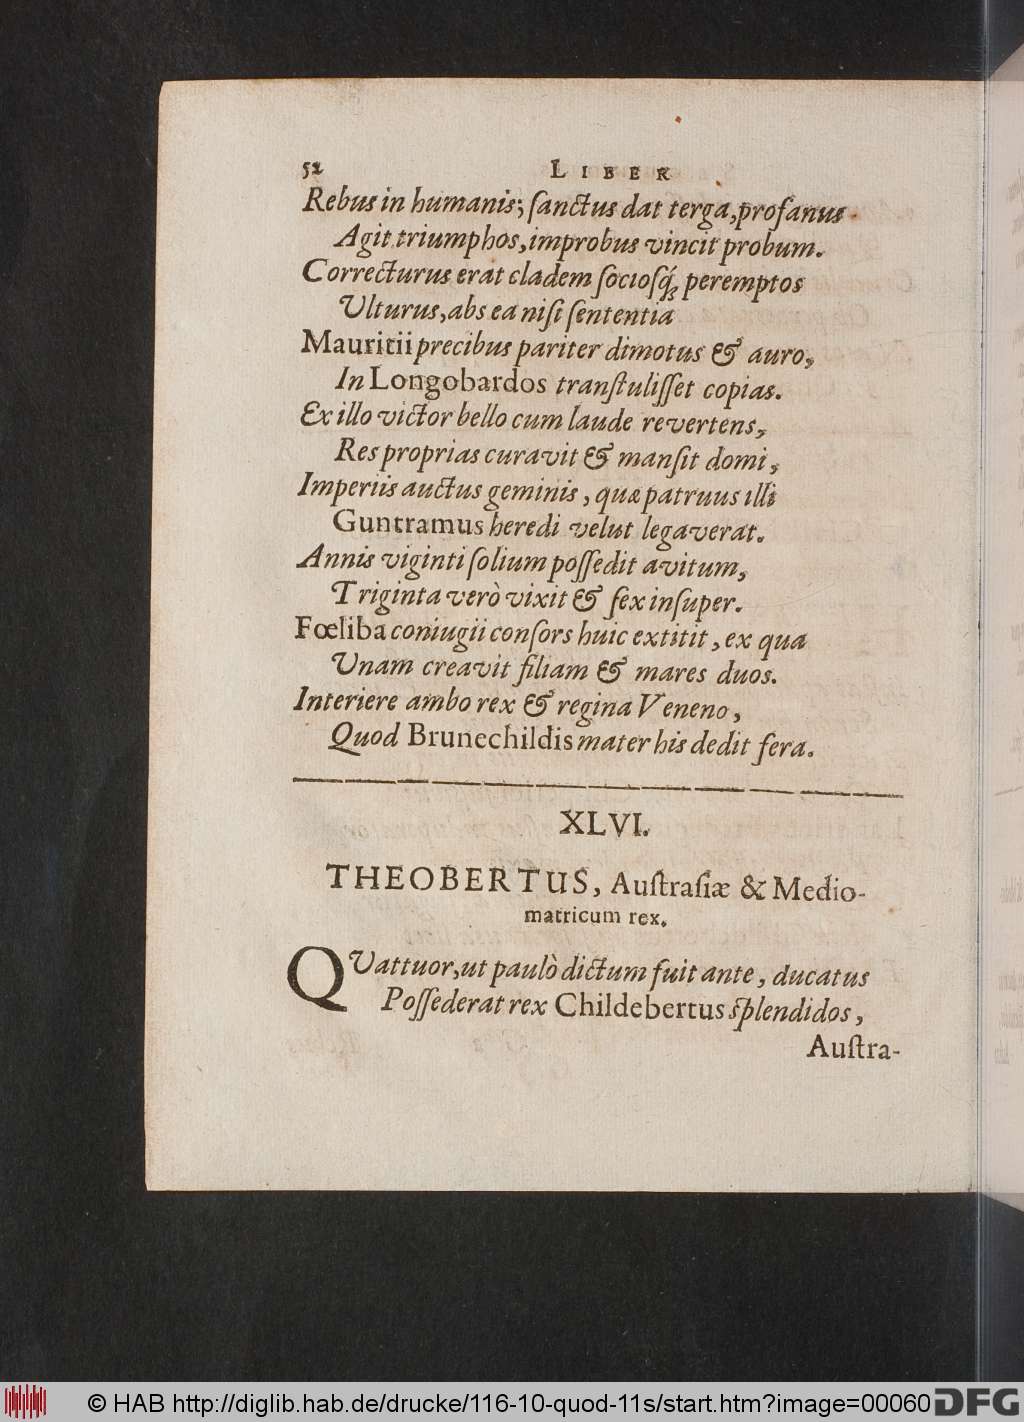 52 LIBER
Rebus in humanis; ſanctus dat terga, profanus
Agit triumphos, improbus vincit probum.
Correcturus erat cladem ſocioſq́ꝫ peremptos
Ulturus, abs ea niſi ſententia
Mauritii precibus pariter dimotus & auro,
In Longobardos tranſtuliſſet copias.
Ex illo victor bello cum laude revertens,
Res proprias curavit & manſit domi,
Imperiis auctus geminis, quæ patruus illi
Guntramus heredi velut legaverat.
Annis viginti ſolium poſſedit avitum,
Triginta verò vixit & ſex inſuper.
Fœliba coniugii conſors huic extitit, ex qua
Unam creavit filiam & mares duos.
Interiere ambo rex & regina Veneno,
Quod Brunechildis mater his dedit fera.
XLVI.
THEOBERTUS, Auſtraſiæ & Medio-
matricum rex.
QUattuor, ut paulò dictum fuit ante, ducatus
Poſſederat rex Childebertus ſplendidos,
Auſtra-
© HAB http://diglib.hab.de/drucke/116-10-quod-11s/start.htm?image=00060 DFG